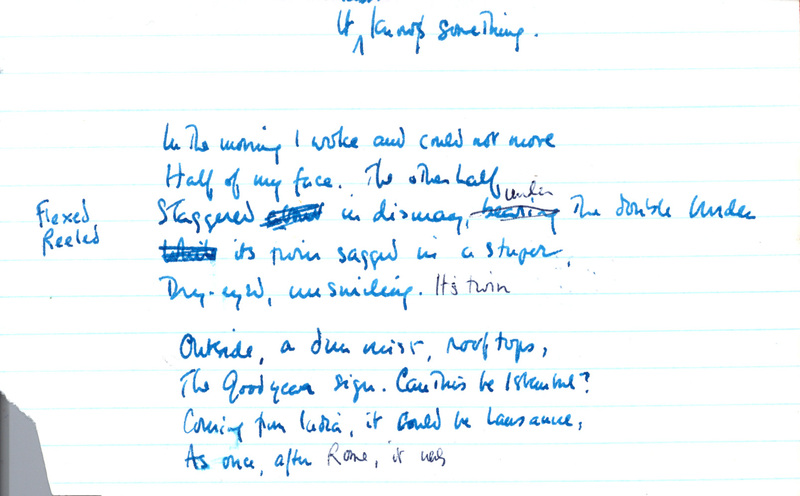 It ^ knows something.
In the morning I woke and could not move
Half of my face. The other half,
under
Flexed
Staggered in dismay, bearing The double under
Reeled
its twin sagged in a stupor,
Dry-eyed, unsmiling. It's twin
Outside, a dun mist, rooftops,
The Goodyear sign. Can this be Istanbul?
Coming from India, it could be Lausanne,
As once, after Rome, it was